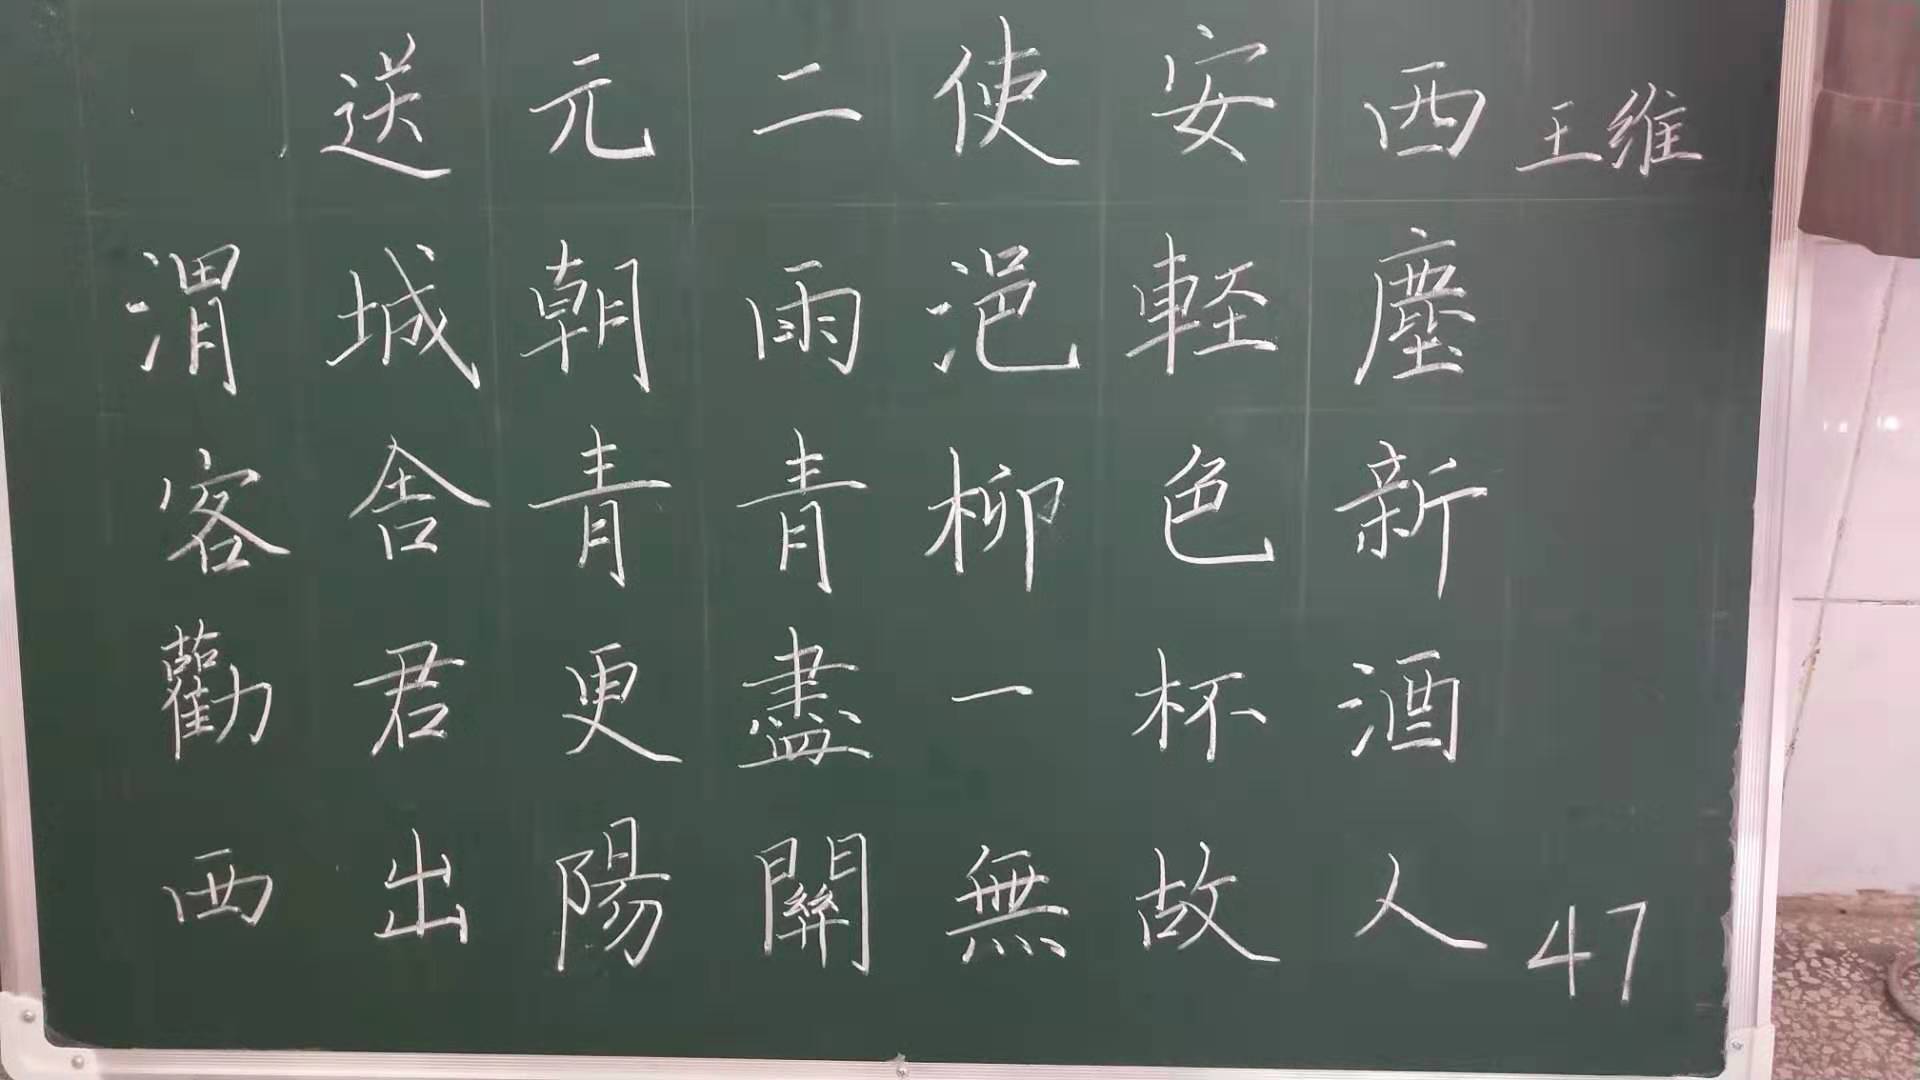 送元二使安西 王维
渭城朝雨浥軽塵
客舍青青柳色新
勸君更盡一杯酒
西出陽關無故人
47